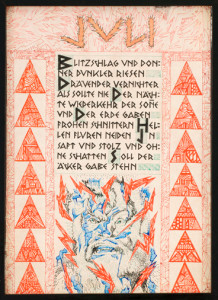 JULI
BLITZSCHLAG UND DON=
NER DUNKLER RIESEN
DRÄUENDER VERNICHTER
ALS SOLLTE NIE DER NÄCH=
TE WIEDERKEHR DER SOÑE
UND DER ERDE GABEN
FROHEN SCHNITTERN HEL=
LEN FLUREN NEIDEN IN
SAFT UND STOLZ UND OH=
NE SCHATTEN SOLL DER
JÄGER GABE STEHN